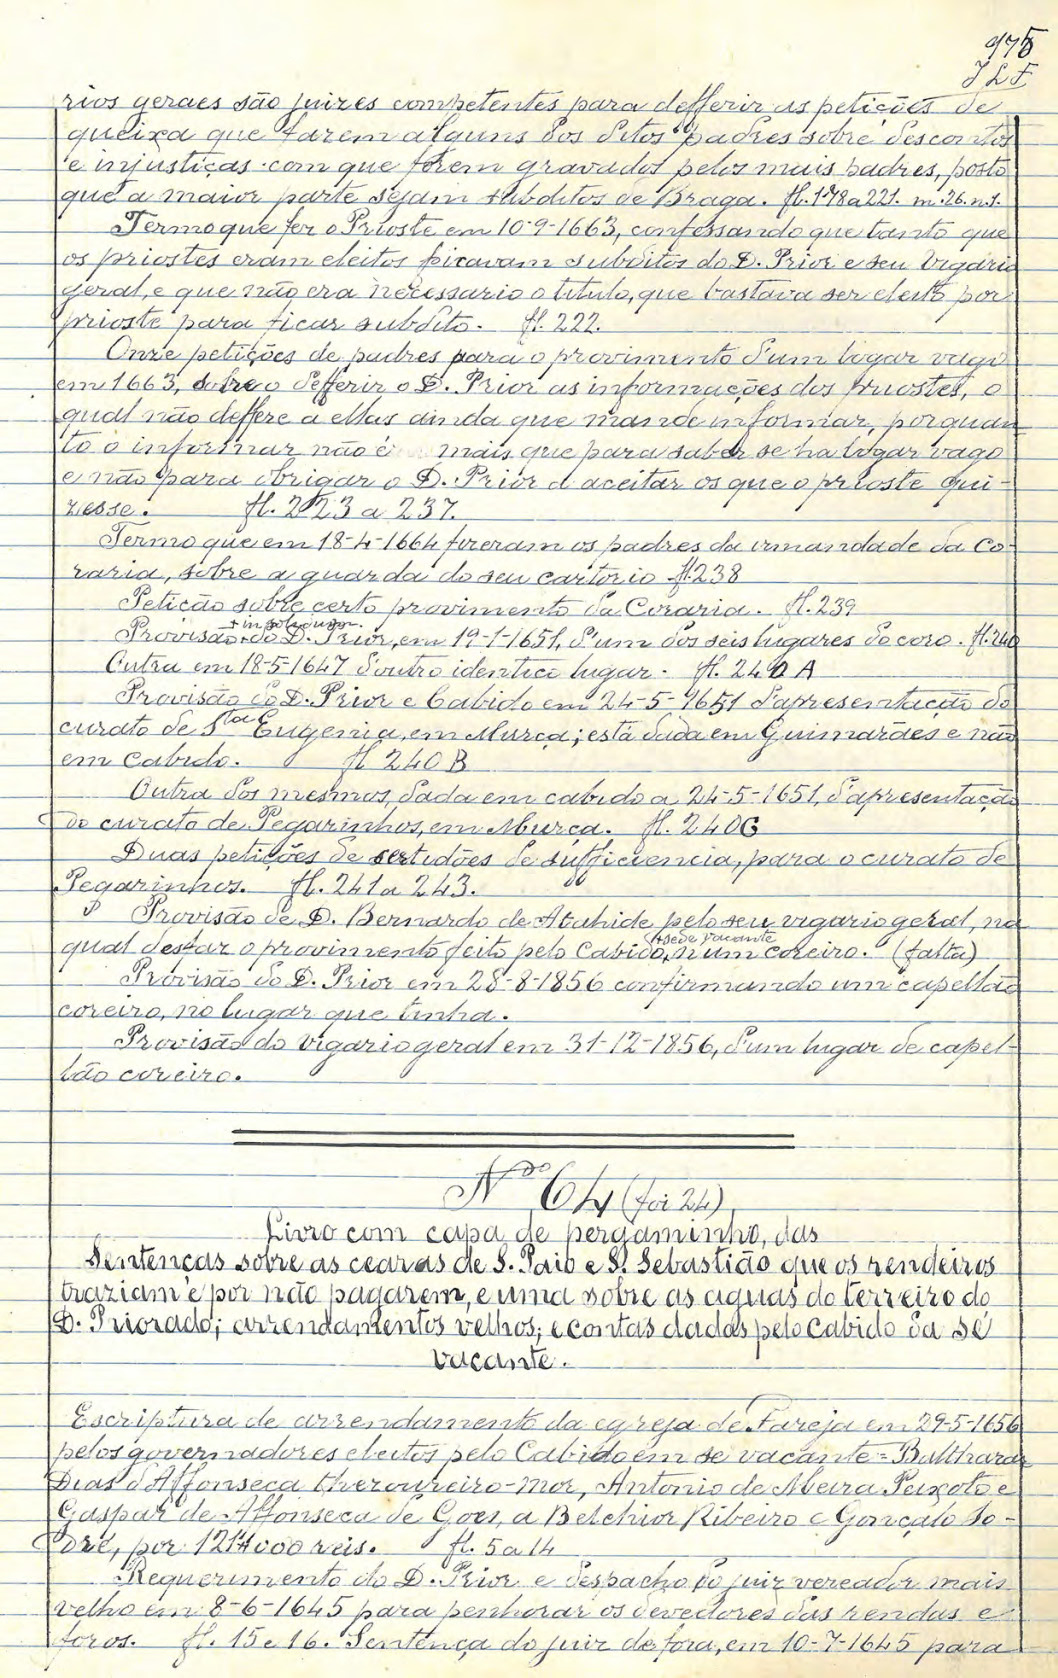 975
J L F
rios geraes são juizes competentes para defferir as petições de
queixa que farem alguns dos ditos padres sobre descontos
e injustiças com que forem gravados pelos mais padres, posto
que a maior parte sejam subditos de Braga. fl. 178 a 221. m. 26. n. 1.
Termo que fez o Prioste em 10-9-1663, confessando que tanto que
os priostes eram eleitos ficavam subditos do D. Prior e seu vigario
geral, e que não era necessario o titulo, que bastava ser eleito por
prioste para ficar subdito. fl. 222.
Onze petições de padres para o provimento d'um logar vago
em 1663, sobre o defferir o D. Prior as informações dos priostes, o
qual não deffere a ellas ainda que mande informar, porquan
to o informar não é mais que para saber se ha logar vago
e não para obrigar o D. Prior a aceitar os que o prioste qui-
zesse. fl. 223 a 237.
Termo que em 18-4-1664 fizeram os padres da irmandade da Co-
raria, sobre a guarda do seu cartorio fl. 238
Petição sobre certo provimento da Coraria. fl. 239
+ in solidum.
Provisão + do D. Prior, em 19-1-1651, d'um dos seis lugares do coro. fl. 240
Outra em 18-5-1647 d'outro identico lugar. fl. 240 A
Provisão do D. Prior e Cabido em 24-5-1651 d'apresentação do
curato de Sta Eugenia, em Murça; está dada em Guimarães e não
em cabido. fl 240 B
Outra dos mesmos, dada em cabido a 24-5-1651, d'apresentação
do curato de Pegarinhos, em Murça. fl. 240 C
Duas petições de certidões de sufficiencia, para o curato de
Pegarinhos. fl. 241 a 243.
Provisão de D. Bernardo de Atahide, pelo seu vigario geral, na
+ sede vacante
qual desfaz o provimento feito pelo Cabido, + n'um coreiro. (falta)
Provisão do D. Prior em 28-8-1856 confirmando um capellão
coreiro, no lugar que tinha.
Provisão do vigario geral em 31-12-1856, d'um lugar de capel-
lão coreiro.
No 64 (foi 24)
Livro com capa de pergaminho, das
Sentenças sobre as cearas de S. Paio e S. Sebastião que os rendeiros
traziam e por não pagarem, e uma sobre as aguas do terreiro do
D. Priorado; arrendamentos velhos; e contas dadas pelo Cabido da Sé
vacante.
Escriptura de arrendamento da egreja de Fareja em 29-5-1656
pelos governadores eleitos pelo Cabido em se vacante = Balthazar
Dias d'Affonseca thezoureiro-mor, Antonio de Meira Peixoto e
Gaspar de Affonseca de Goes, a Belchior Ribeiro e Gonçalo So-
dré, por 121$000 reis. fl. 5 a 14
Requerimento do D. Prior e despacho do juiz vereador mais
velho em 8-6-1645 para penhorar os devedores das rendas e
foros. fl. 15 e 16. Sentença do juiz de fora, em 10-7-1645 para